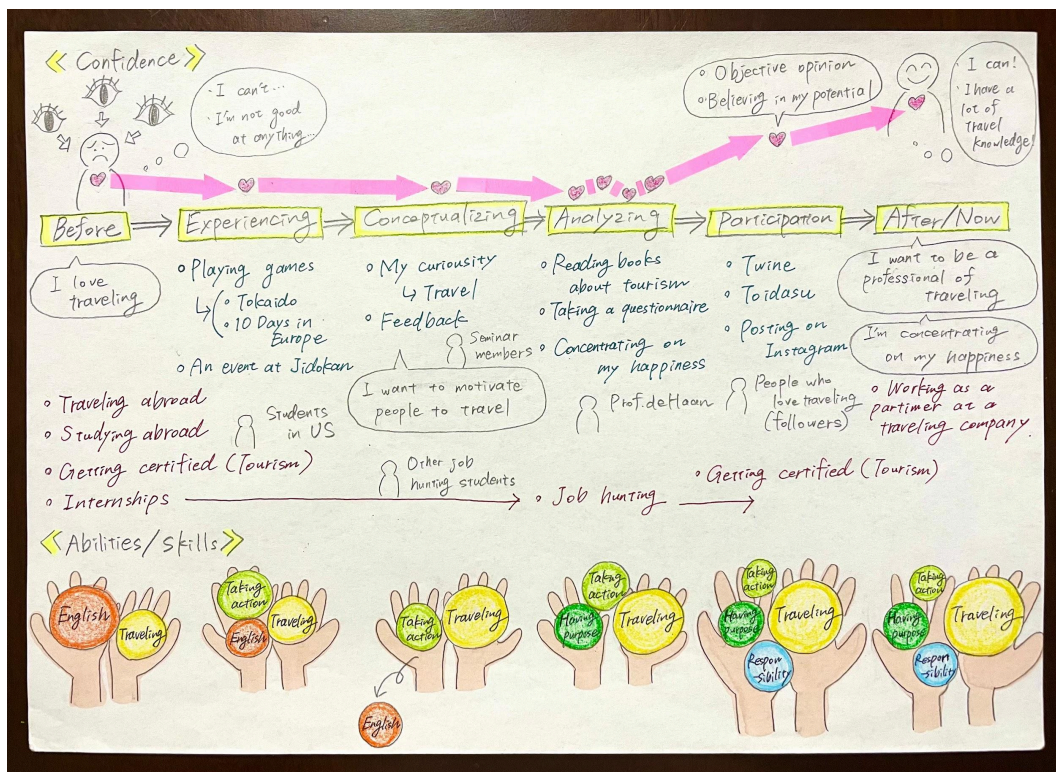 Confidence
・I can't...
・I'm not good
at anything...
Objective opinion
Believing in my potential
・I can!
・I have a
lot of
travel
knowledge!
Before
Experiencing
Conceptualizing
Analyzing
Participation
After/Now
I love
traveling
Playing games
Tokaido
10 Days in
Europe
An event at Jidokan
My curiousity
Travel
Feedback
Seminar
members
I want to motivate
people to travel
Reading books
about tourism
Taking a questionnaire
Concentrating on
my happiness
Prof. deHaan
Twine
Toidasu
Posting on
Instagram
People who
love traveling
(followers)
I want to be a
professional of
traveling
I'm concentrating
on my happiness
Working as a
partimer at a
traveling company.
Traveling abroad
Studying abroad
Students
in US
Getting certified (Tourism)
Internships
Other job
hunting students
Job hunting
Getting certified (Tourism)
Abilities/Skills
English
Traveling
Taking
action
English
Traveling
Taking
action
Traveling
English
Taking
action
Having
purpose
Traveling
Taking
action
Having
purpose
Traveling
Respon
-sibility
Taking
action
Having
purpose
Traveling
Respon
-sibility